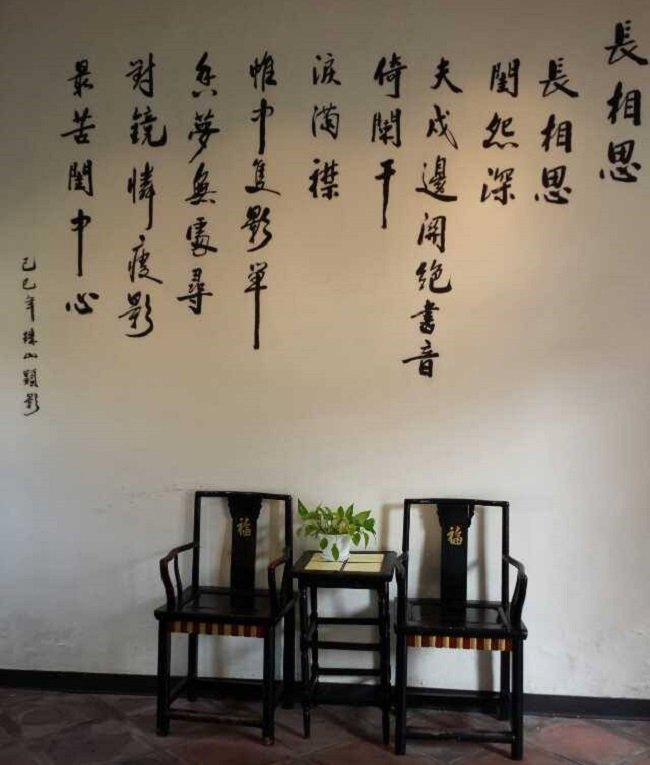 長相思
長相思
閨怨深
夫戍邊關絕書音
倚闌干
淚滿襟
帷中隻影單
魚夢無處尋
對鏡憐瘦影
最苦閨中心
己巳年珠山顯影
福
福